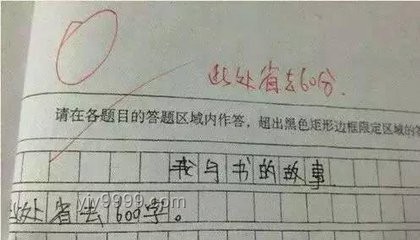 此处省去60分.
请在各题目的答题区域内作答，超出黑色矩形边框限定区域的答
我与书的故事
此处省去600字。
yjy9999.com